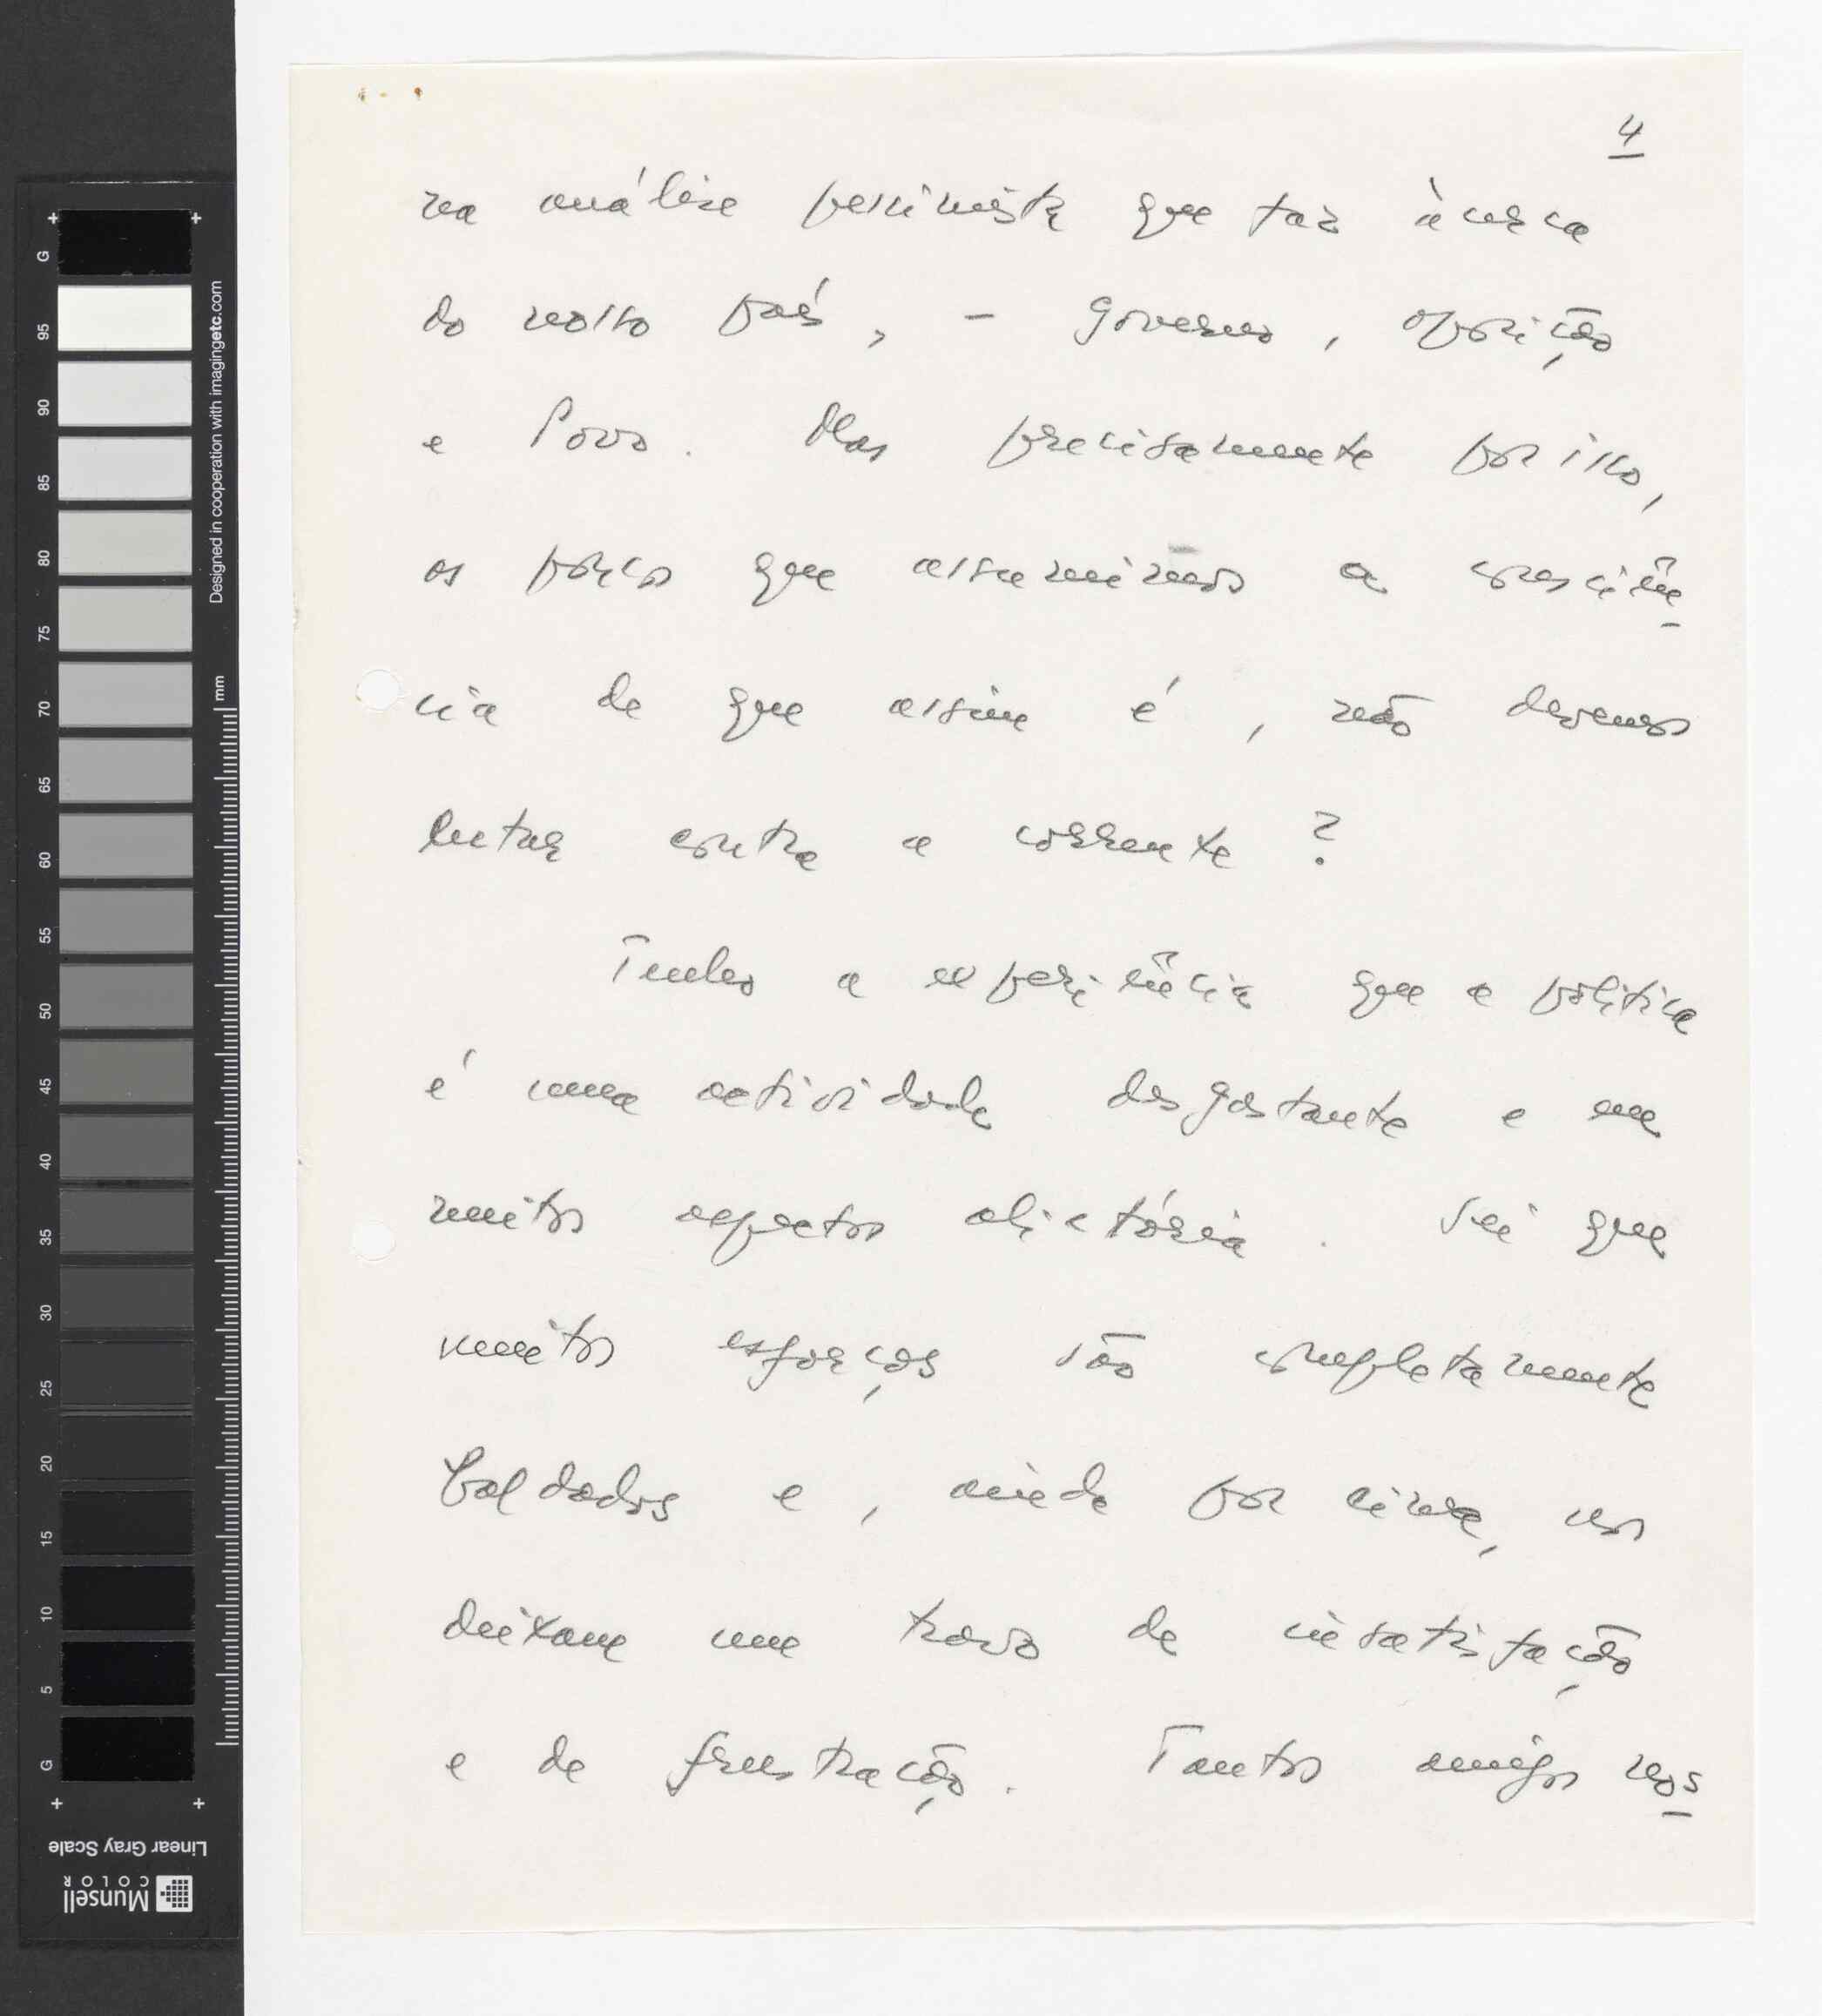 4
na análise pessimista que faz àcerca
do nosso país, - governo, oposição
e Povo. Mas precisamente por isso,
os poucos que assumimos a consciên
cia de que assim é, não devemos
lutar contra a corrente?
Tenho a experiência que a política
é uma actividade desgastante e em
muitos aspectos aliciatória. Sei que
muitos esforços são completamente
baldados e, ainda por cima, nos
deixam um travo de insatisfação
e de frustração. Tantos amigos nos
G
95
90
85
80
75
70
65
60
55
50
45
40
35
30
25
20
15
10
5
G
mm
Designed in cooperation with imagingetc.com
Linear Gray Scale
Munsell
COLOR